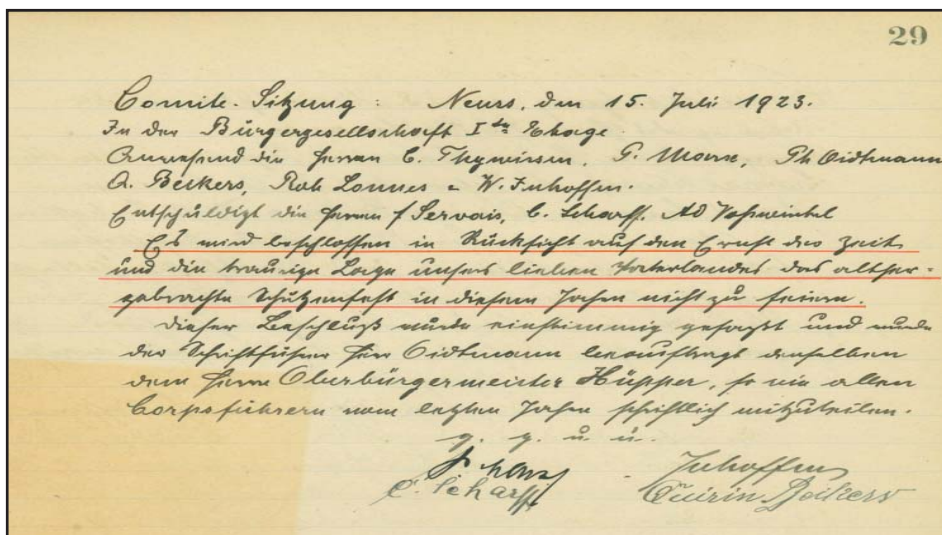 29
Comite-Sitzung: Neuss, den 15. Juli 1923.
In der Bürgergesellschaft I te Etage.
Anwesend die Herren C. Thywissen, P. Marx, Ph Oidtmann
A. Beckers, Rob Lonnes u W. Inhoffen.
Entschuldigt die Herren f Servais, C. Scharff. AD Voßwinkel
Es wird beschlossen in Rücksicht auf den Ernst der Zeit
und die traurige Lage unsers lieben Vaterlandes das alther-
gebrachte Schützenfest in diesem Jahre nicht zu feiern.
Dieser Beschluß wurde einstimmig gefaßt und wurde
der Schriftführer Herr Oidtmann beauftragt denselben
dem Herrn Oberbürgermeister Hüpper, so wie allen
Corpsführern vom letzten Jahre schriftlich mitzuteilen.
g. g. u. u.
Inhoffen
C. Scharff Quirin Beckers